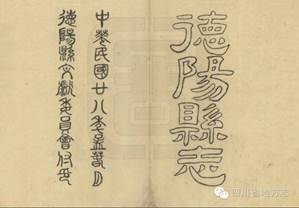 德陽縣志
中華民國廿八年孟夏月
德陽縣文獻委員會付梓
四川省地方志